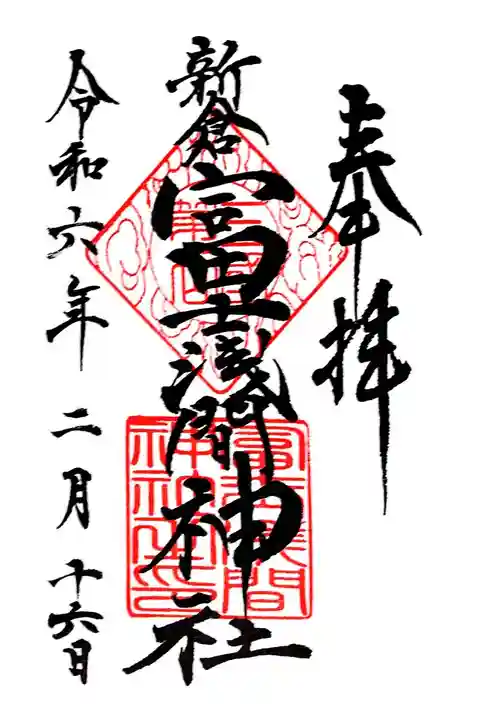 奉拝
新倉富士淺間神社
富士淺間
神社之印
令和六年二月十六日